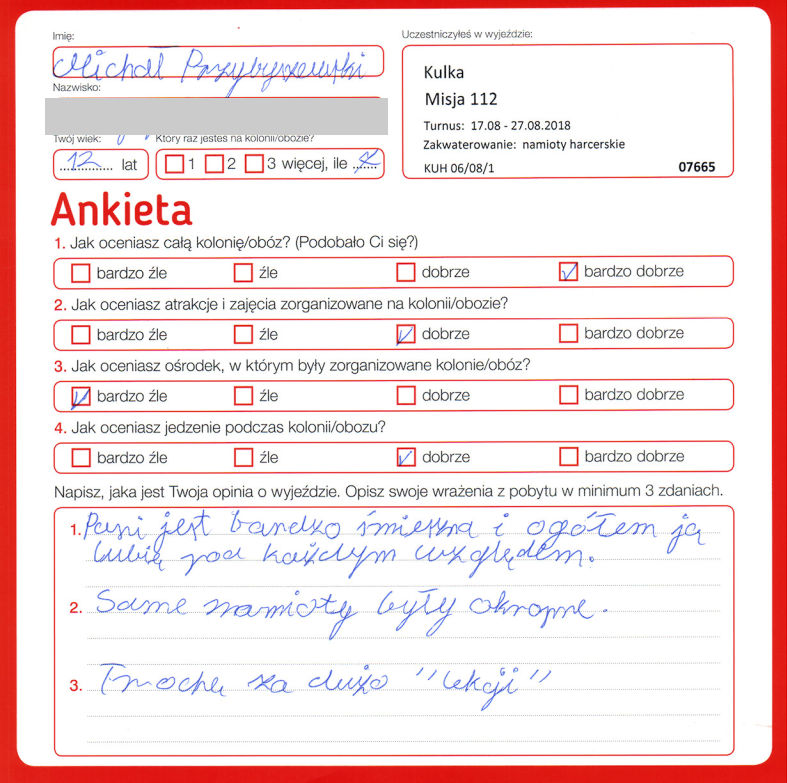 Imię:
Michał Przybyszewski
Nazwisko:
Twój wiek:
12 lat
Który raz jesteś na kolonii/obozie?
1 2 3 więcej, ile
Uczestniczyłeś w wyjeździe:
Kulka
Misja 112
Turnus: 17.08 - 27.08.2018
Zakwaterowanie: namioty harcerskie
KUH 06/08/1 07665
Ankieta
1. Jak oceniasz całą kolonię/obóz? (Podobało Ci się?)
bardzo źle źle dobrze bardzo dobrze
2. Jak oceniasz atrakcje i zajęcia zorganizowane na kolonii/obozie?
bardzo źle źle dobrze bardzo dobrze
3. Jak oceniasz ośrodek, w którym były zorganizowane kolonie/obóz?
bardzo źle źle dobrze bardzo dobrze
4. Jak oceniasz jedzenie podczas kolonii/obozu?
bardzo źle źle dobrze bardzo dobrze
Napisz, jaka jest Twoja opinia o wyjeździe. Opisz swoje wrażenia z pobytu w minimum 3 zdaniach.
1. Pani jest bardzo śmieszna i ogółem ją
lubię pod każdym względem.
2. Same namioty były okropne.
3. Trochę za dużo "lekcji"